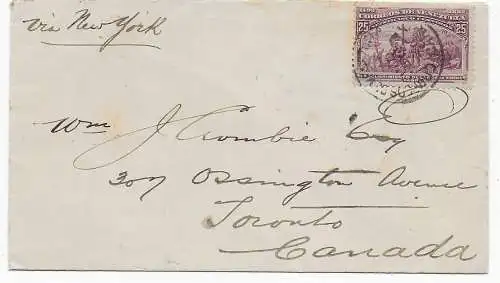 via New York
CORREOS DE VENEZUELA
25 25
Wm J. Crombie Esq
307 Ossington Avenue
Toronto
Canada